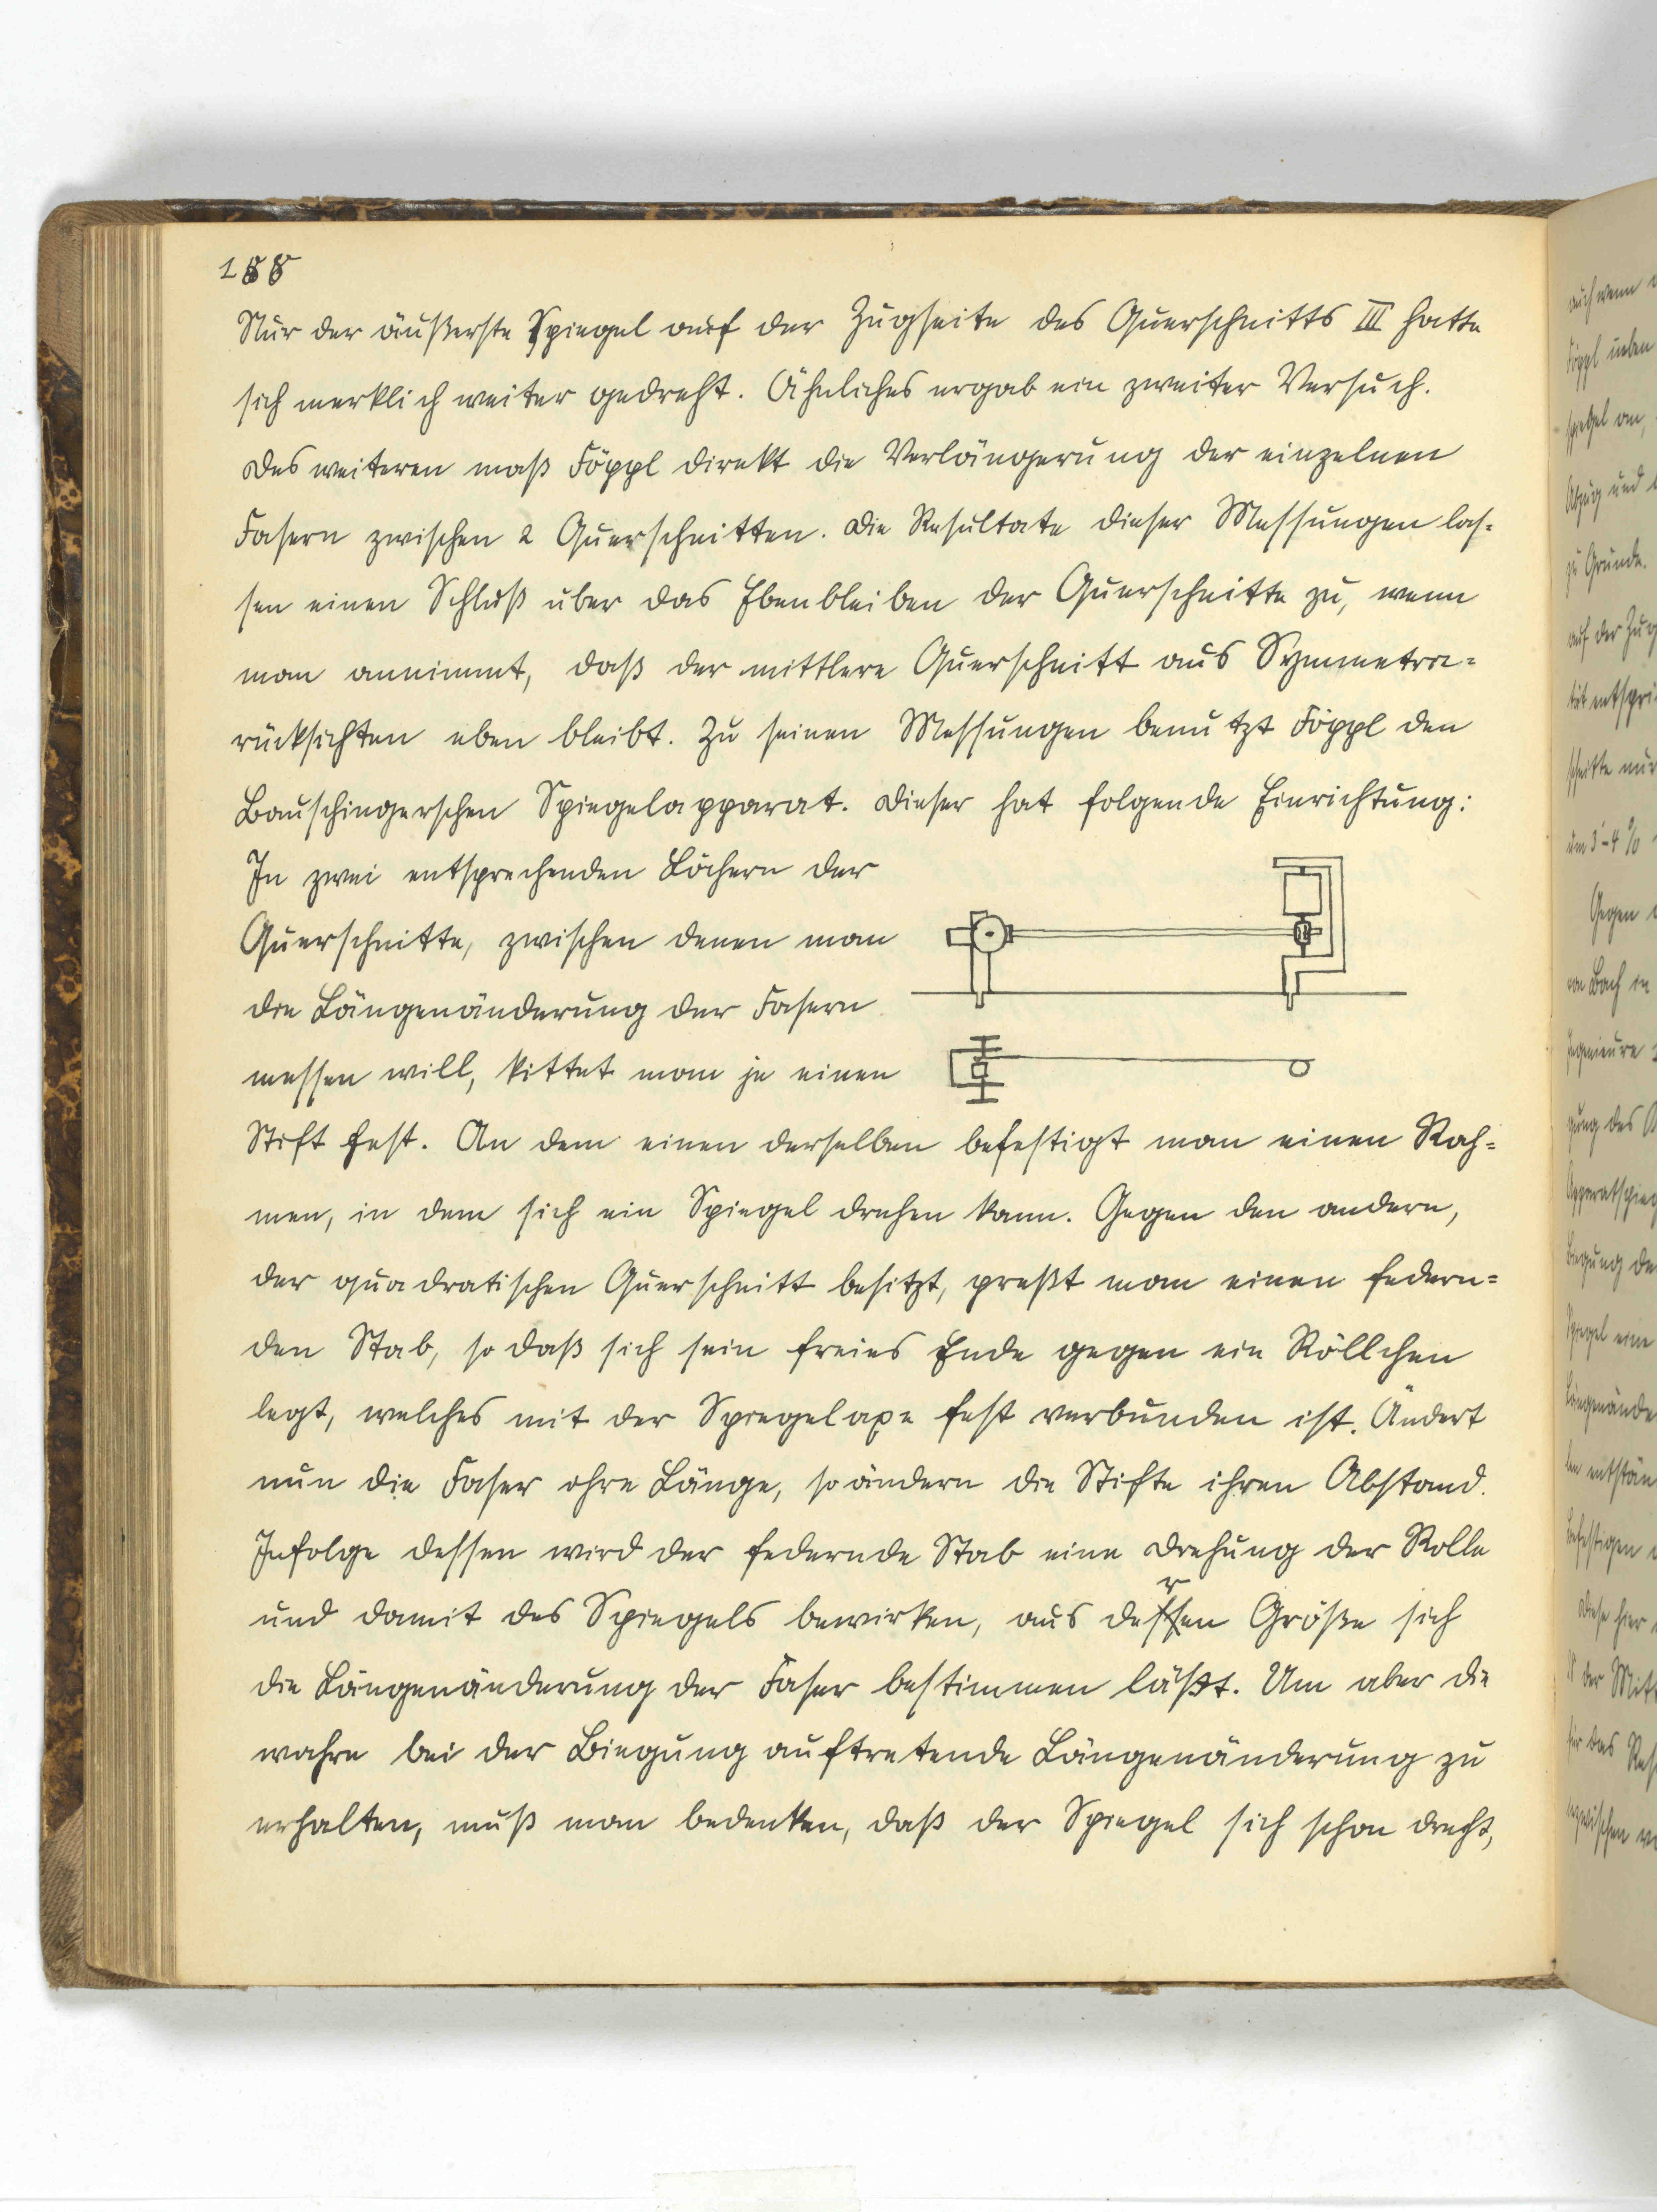 188
Nur der äußerste Spiegel auf der Zugseite des Querschnitts III hatte
sich merklich weiter gedreht. Ähnliches ergab ein zweiter Versuch.
Des weiteren maß Föppl direkt die Verlängerung der einzelnen
Fasern zwischen 2 Querschnitten. Die Resultate dieser Messungen las-
sen einen Schluß über das Ebenbleiben der Querschnitte zu, wenn
man annimmt, daß der mittlere Querschnitt aus Symmetrie-
rücksichten eben bleibt. Zu seinen Messungen benutzt Föppl den
Bauschingerschen Spiegelapparat. Dieser hat folgende Einrichtung:
In zwei entsprechenden Löchern der
Querschnitte, zwischen denen man
die Längenänderung der Fasern
messen will, kittet man je einen
Stift fest. An dem einen derselben befestigt man einen Rah-
men, in dem sich ein Spiegel drehen kann. Gegen den andern,
der quadratischen Querschnitt besitzt, preßt man einen federn-
den Stab, so daß sich sein freies Ende gegen ein Röllchen
legt, welches mit der Spiegelaxe fest verbunden ist. Ändert
nun die Faser ihre Länge, so ändern die Stifte ihren Abstand.
Infolge dessen wird der federnde Stab eine Drehung der Rolle
und damit des Spiegels bewirken, aus deren Größe sich
die Längenänderung der Faser bestimmen läßt. Um aber die
wahre bei der Biegung auftretende Längenänderung zu
erhalten, muß man bedenken, daß der Spiegel sich schon dreht,